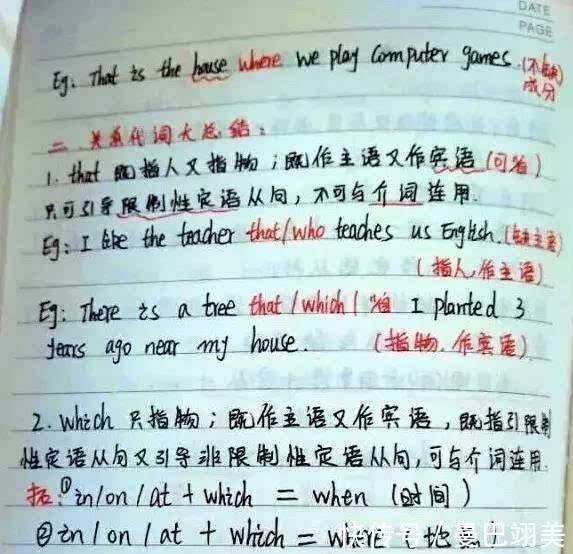 DATE
PAGE
Eg: That is the house where we play computer games. (不缺
成分
二、关系代词大总结:
1. that 既指人又指物;既作主语又作宾语(可省)
只可引导限制性定语从句,不可与介词连用.
Eg: I like the teacher that/who teaches us English. (缺主语)
(指人,作主语)
Eg: There is a tree that / which / 省 I planted 3
years ago near my house. (指物.作宾语)
2. which 只指物;既作主语又作宾语,既指引限制
性定语从句又引导非限制性定语从句,可与介词连用.
①in/on/at + which = when (时间)
②in/on/at + which = where 地点
快传号/曼巴翊美